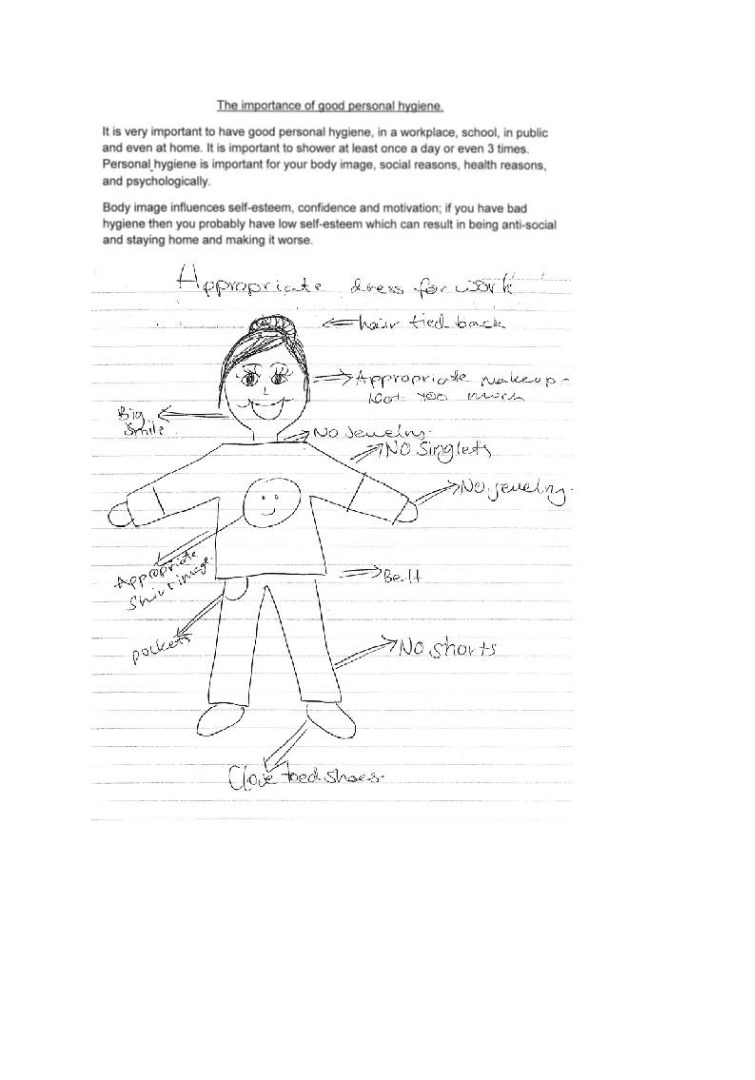 The importance of good personal hygiene.
It is very important to have good personal hygiene, in a workplace, school, in public
and even at home. It is important to shower at least once a day or even 3 times.
Personal hygiene is important for your body image, social reasons, health reasons,
and psychologically.
Body image influences self-esteem, confidence and motivation; if you have bad
hygiene then you probably have low self-esteem which can result in being anti-social
and staying home and making it worse.
Appropriate dress for work
hair tied back
Appropriate makeup -
not too much
Big
Smile.
No Jewelry.
NO Singlets
No jewelry.
Appropriate
Shirt image.
Belt
pockets
No shorts
Close toed shoes.